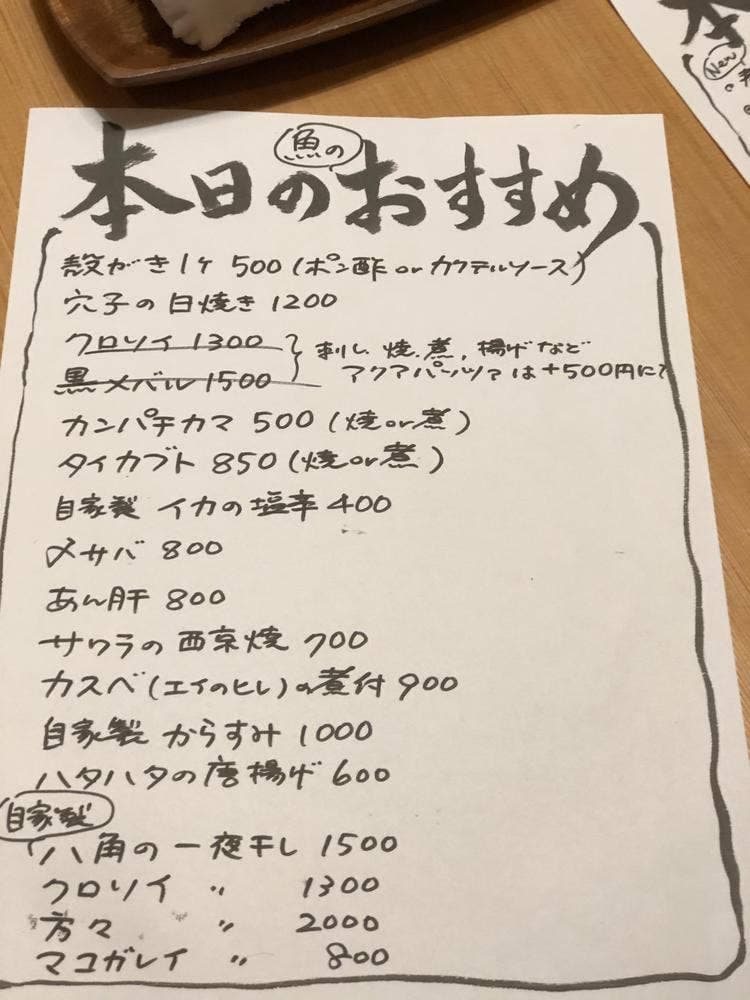 New
魚の
本日のおすすめ
殻がき 1ヶ 500 (ポン酢 or カクテルソース)
穴子の白焼き 1200
クロソイ 1300
黒メバル 1500
刺し、焼、煮、揚げなど
アクアパッツァは+500円にて
カンパチカマ 500 (焼or煮)
タイカブト 850 (焼or煮)
自家製 イカの塩辛 400
〆サバ 800
あん肝 800
サワラの西京焼 700
カスベ(エイのヒレ)の煮付 900
自家製 からすみ 1000
ハタハタの唐揚げ 600
自家製
八角の一夜干し 1500
クロソイ 〃 1300
方々 〃 2000
マコガレイ 〃 800